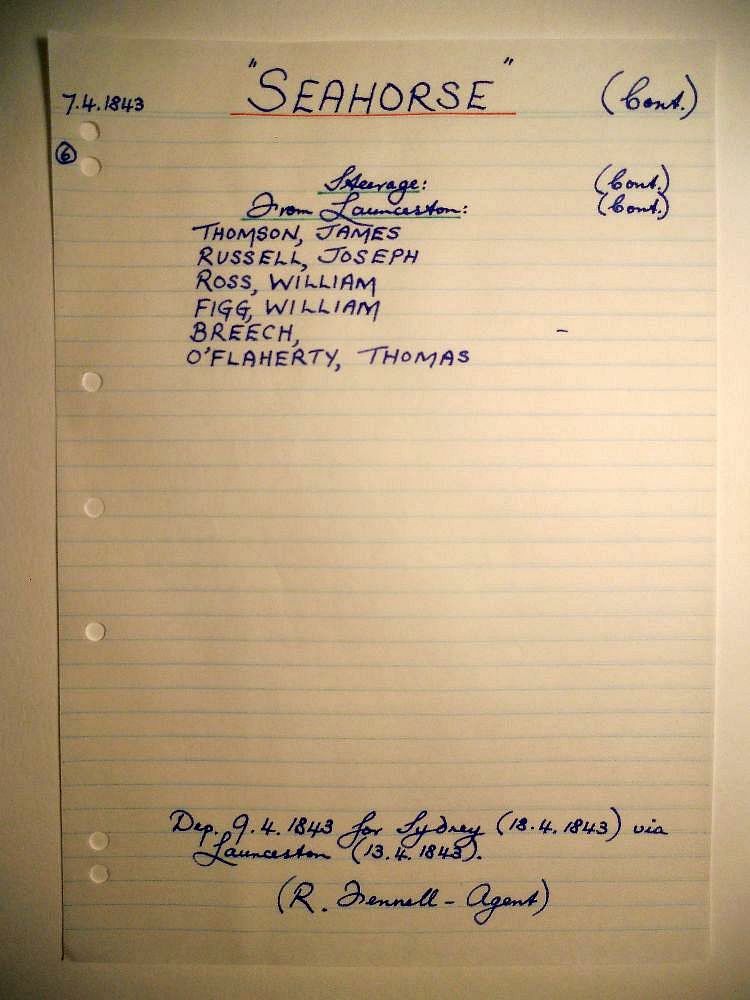 7.4.1843 "SEAHORSE" (Cont.)
6
Steerage: (Cont.)
From Launceston: (Cont.)
THOMSON, JAMES
RUSSELL, JOSEPH
ROSS, WILLIAM
FIGG, WILLIAM
BREECH, -
O'FLAHERTY, THOMAS
Dep. 9.4.1843 for Sydney (18.4.1843) via
Launceston (13.4.1843).
(R. Fennell - Agent)